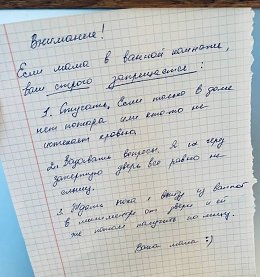 Внимание!
Если мама в ванной комнате,
вам строго запрещается:
1. Стучать, если только в доме
нет пожара или кто-то не
истекает кровью.
2. Задавать вопросы. Я их через
запертую дверь все равно не
слышу.
3. Ждать пока я выйду из ванной
в миллиметре от двери и ей
же потом получить по лицу.
Ваша мама :)